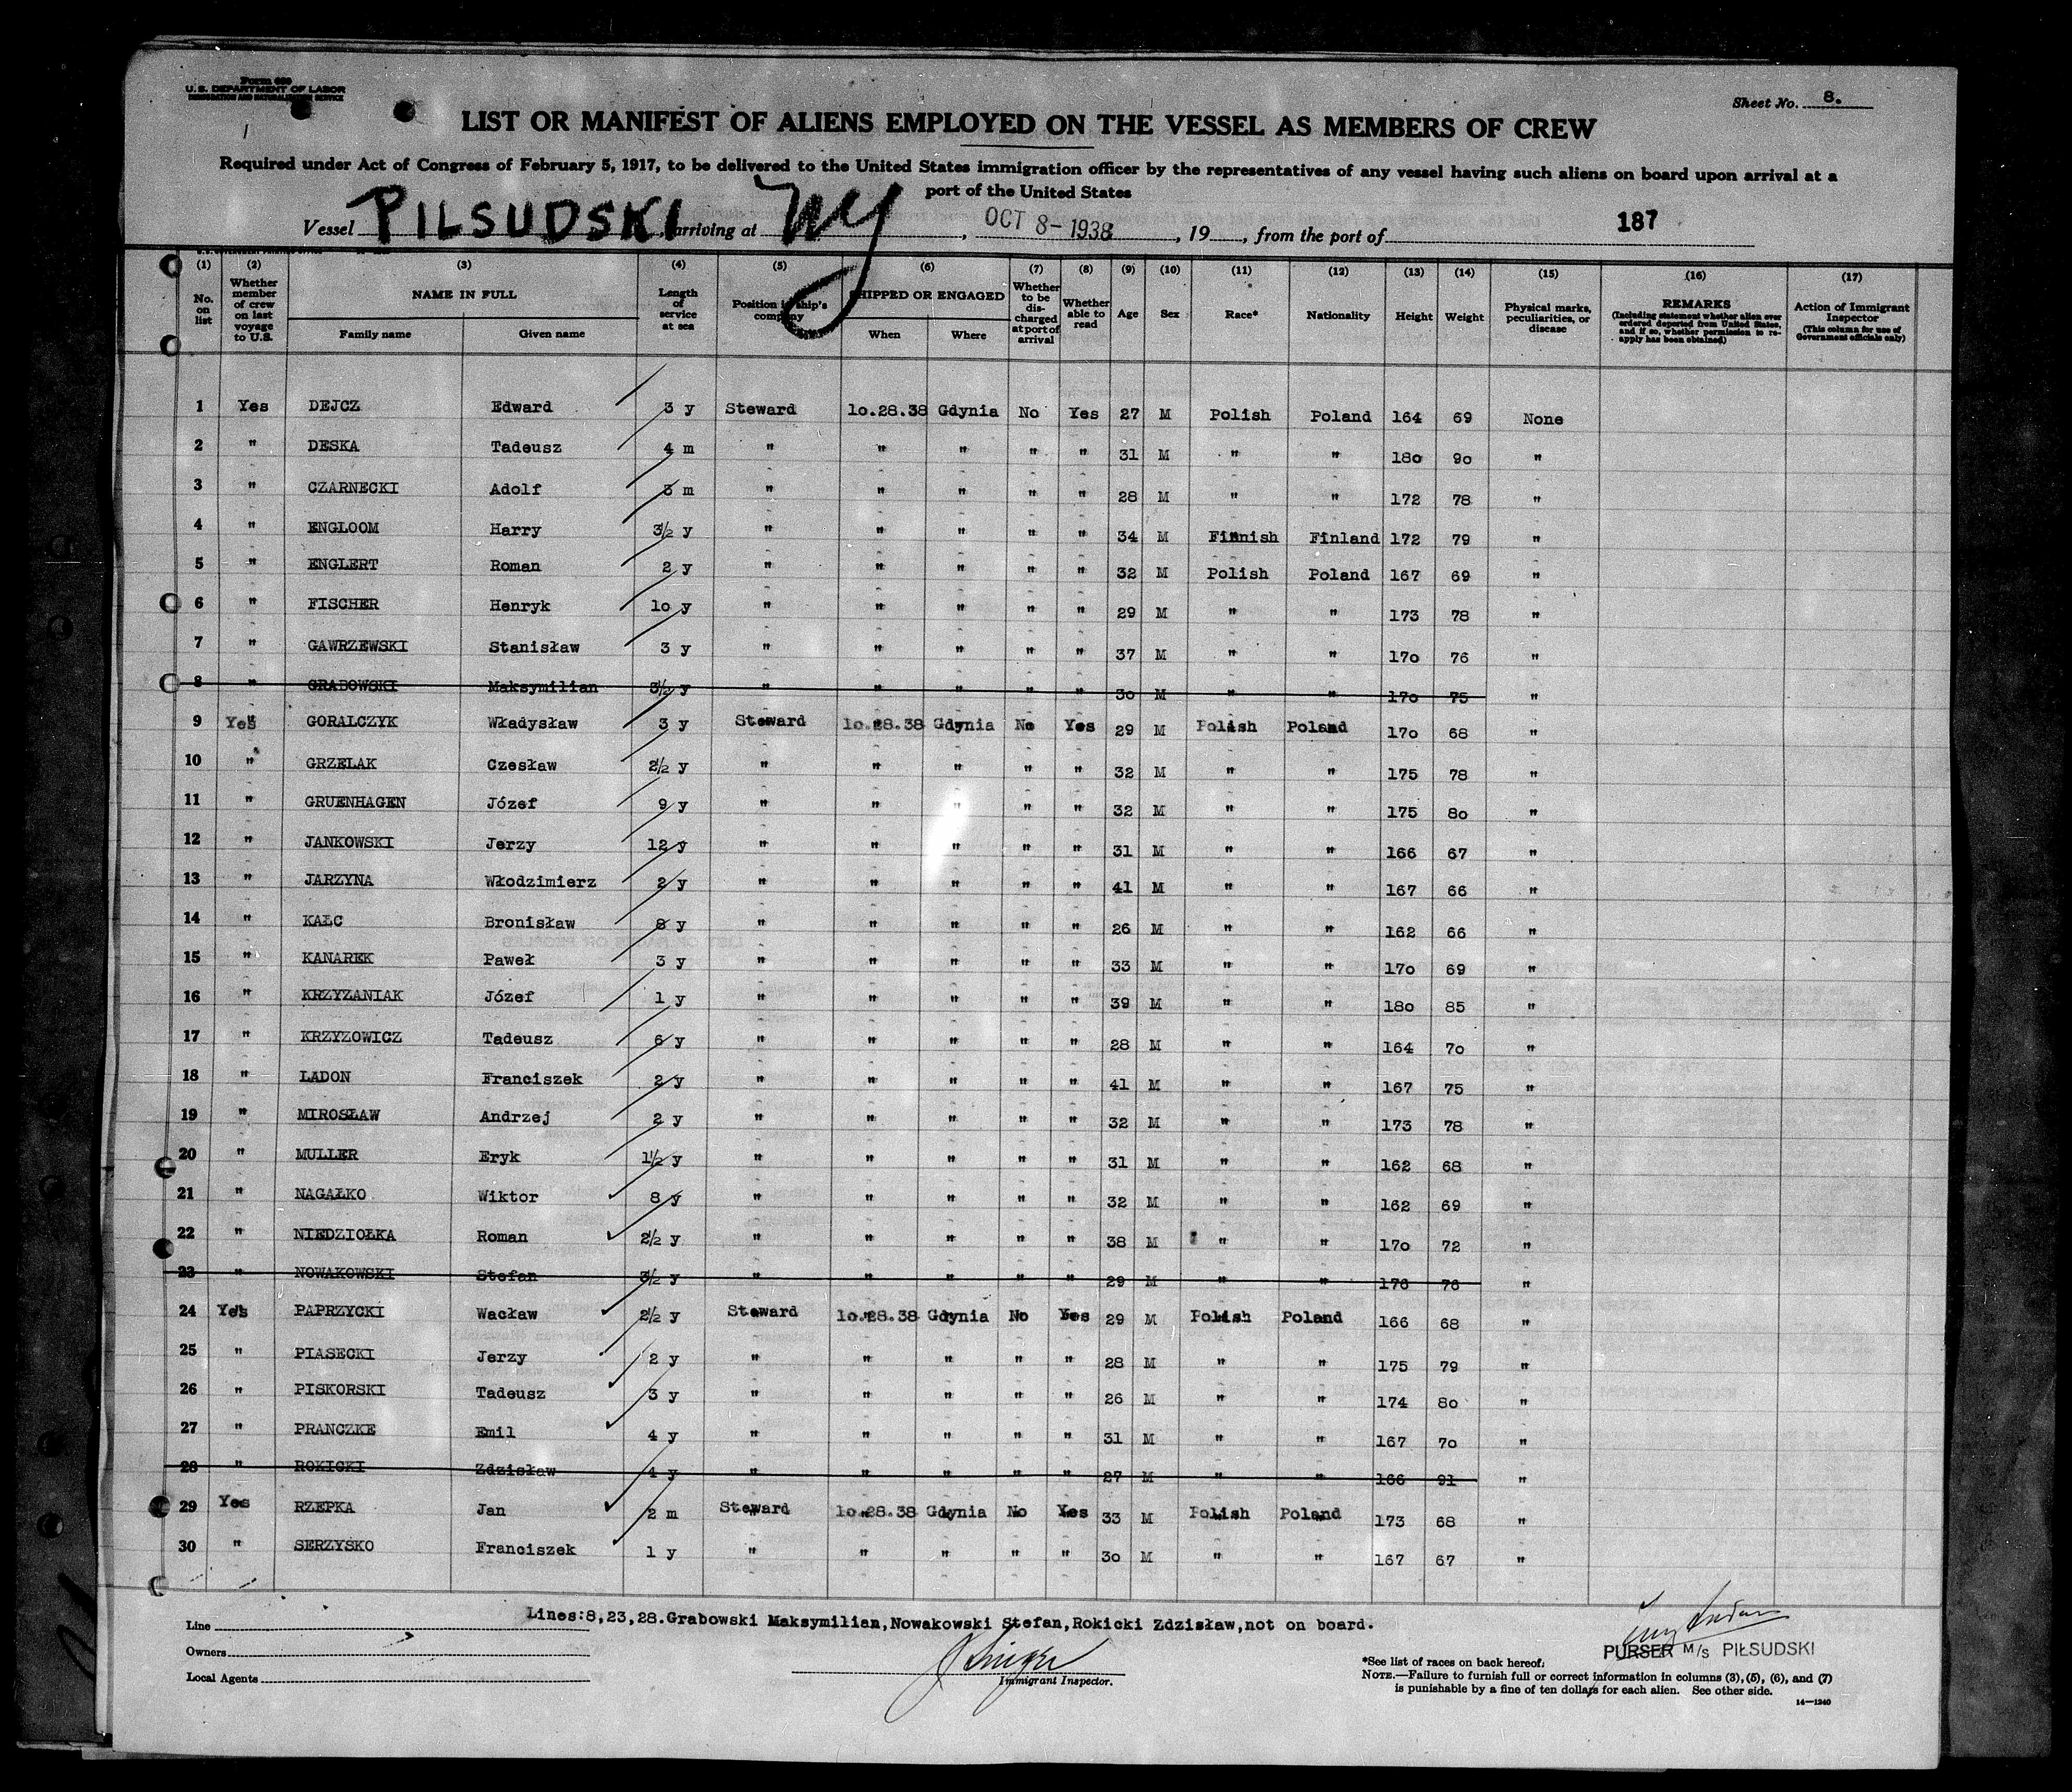 Form 680
U. S. DEPARTMENT OF LABOR
IMMIGRATION AND NATURALIZATION SERVICE
Sheet No. 8.
LIST OR MANIFEST OF ALIENS EMPLOYED ON THE VESSEL AS MEMBERS OF CREW
Required under Act of Congress of February 5, 1917, to be delivered to the United States immigration officer by the representatives of any vessel having such aliens on board upon arrival at a
port of the United States
Vessel PILSUDSKI, arriving at NY, OCT 8-1938, 19, from the port of 187
(1) (2) (3) (4) (5) (6) (7) (8) (9) (10) (11) (12) (13) (14) (15) (16) (17)
No. on list Whether member of crew on last voyage to U.S. NAME IN FULL Family name Given name Length of service at sea Position in ship's company SHIPPED OR ENGAGED When Where Whether to be discharged at port of arrival Whether able to read Age Sex Race* Nationality Height Weight Physical marks, peculiarities, or disease REMARKS (Including statement whether alien ever ordered deported from United States, and if so, whether permission to reapply has been obtained) Action of Immigrant Inspector (This column for use of Government officials only)
1 Yes DEJCZ Edward 3 y Steward 10.28.38 Gdynia No Yes 27 M Polish Poland 164 69 None
2 " DESKA Tadeusz 4 m " " " " " 31 M " " 180 90 "
3 " CZARNECKI Adolf 3 m " " " " " 28 M " " 172 78 "
4 " ENGLOOM Harry 3½ y " " " " " 34 M Finnish Finland 172 79 "
5 " ENGLERT Roman 2 y " " " " " 32 M Polish Poland 167 69 "
6 " FISCHER Henryk 10 y " " " " " 29 M " " 173 78 "
7 " GAWRZEWSKI Stanisław 3 y " " " " " 37 M " " 170 76 "
8 " GRABOWSKI Maksymilian 3½ y " " " " " 30 M " " 170 75 "
9 Yes GORALCZYK Władysław 3 y Steward 10.28.38 Gdynia No Yes 29 M Polish Poland 170 68 "
10 " GRZELAK Czesław 2½ y " " " " " 32 M " " 175 78 "
11 " GRUENHAGEN Józef 9 y " " " " " 32 M " " 175 80 "
12 " JANKOWSKI Jerzy 12 y " " " " " 31 M " " 166 67 "
13 " JARZYNA Włodzimierz 2 y " " " " " 41 M " " 167 66 "
14 " KAŁC Bronisław 8 y " " " " " 26 M " " 162 66 "
15 " KANAREK Paweł 3 y " " " " " 33 M " " 170 69 "
16 " KRZYZANIAK Józef 1 y " " " " " 39 M " " 180 85 "
17 " KRZYZOWICZ Tadeusz 6 y " " " " " 28 M " " 164 70 "
18 " LADON Franciszek 2 y " " " " " 41 M " " 167 75 "
19 " MIROSŁAW Andrzej 2 y " " " " " 32 M " " 173 78 "
20 " MULLER Eryk 1½ y " " " " " 31 M " " 162 68 "
21 " NAGAŁKO Wiktor 8 y " " " " " 32 M " " 162 69 "
22 " NIEDZIOŁKA Roman 2½ y " " " " " 38 M " " 170 72 "
23 " NOWAKOWSKI Stefan 3½ y " " " " " 29 M " " 176 76 "
24 Yes PAPRZYCKI Wacław 2½ y Steward 10.28.38 Gdynia No Yes 29 M Polish Poland 166 68 "
25 " PIASECKI Jerzy 2 y " " " " " 28 M " " 175 79 "
26 " PISKORSKI Tadeusz 3 y " " " " " 26 M " " 174 80 "
27 " PRANCZKE Emil 4 y " " " " " 31 M " " 167 70 "
28 " ROKICKI Zdzisław 4 y " " " " " 27 M " " 166 91 "
29 Yes RZEPKA Jan 2 m Steward 10.28.38 Gdynia No Yes 33 M Polish Poland 173 68 "
30 " SERZYSKO Franciszek 1 y " " " " " 30 M " " 167 67 "
Lines:8,23,28.Grabowski Maksymilian,Nowakowski Stefan,Rokicki Zdzisław,not on board.
Line
Owners
Local Agents
Immigrant Inspector.
PURSER M/s PIŁSUDSKI
*See list of races on back hereof.
NOTE.—Failure to furnish full or correct information in columns (3), (5), (6), and (7)
is punishable by a fine of ten dollars for each alien. See other side.
14—1240